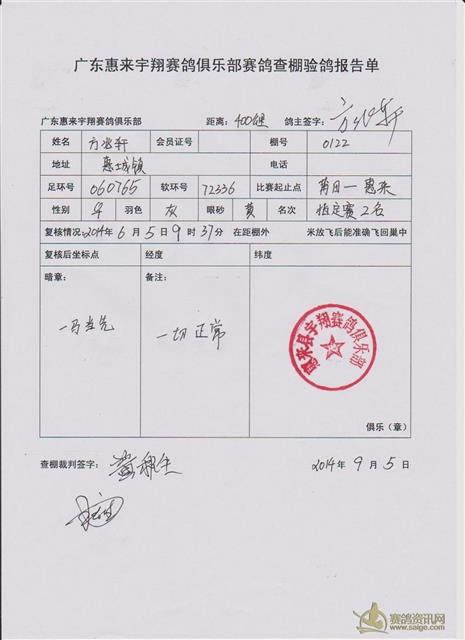 广东惠来宇翔赛鸽俱乐部赛鸽查棚验鸽报告单
广东惠来宇翔赛鸽俱乐部 距离：400 鸽主签字：
姓名 方兆轩 会员证号 棚号 0122
地址 惠城镇 电话
足环号 060765 软环号 72336 比赛起止点 莆田一惠来
性别 羽色 灰 眼砂 黄 名次 指定赛2名
复核情况2014年6月5日9时37分 在距棚外 米放飞后能准确飞回巢中
复核后坐标点 经度 纬度
暗章： 备注：
一马当先 一切正常
惠来县宇翔赛鸽俱乐部
俱乐（章）
查棚裁判签字： 2014年9月5日
赛鸽资讯网
www.saige.com